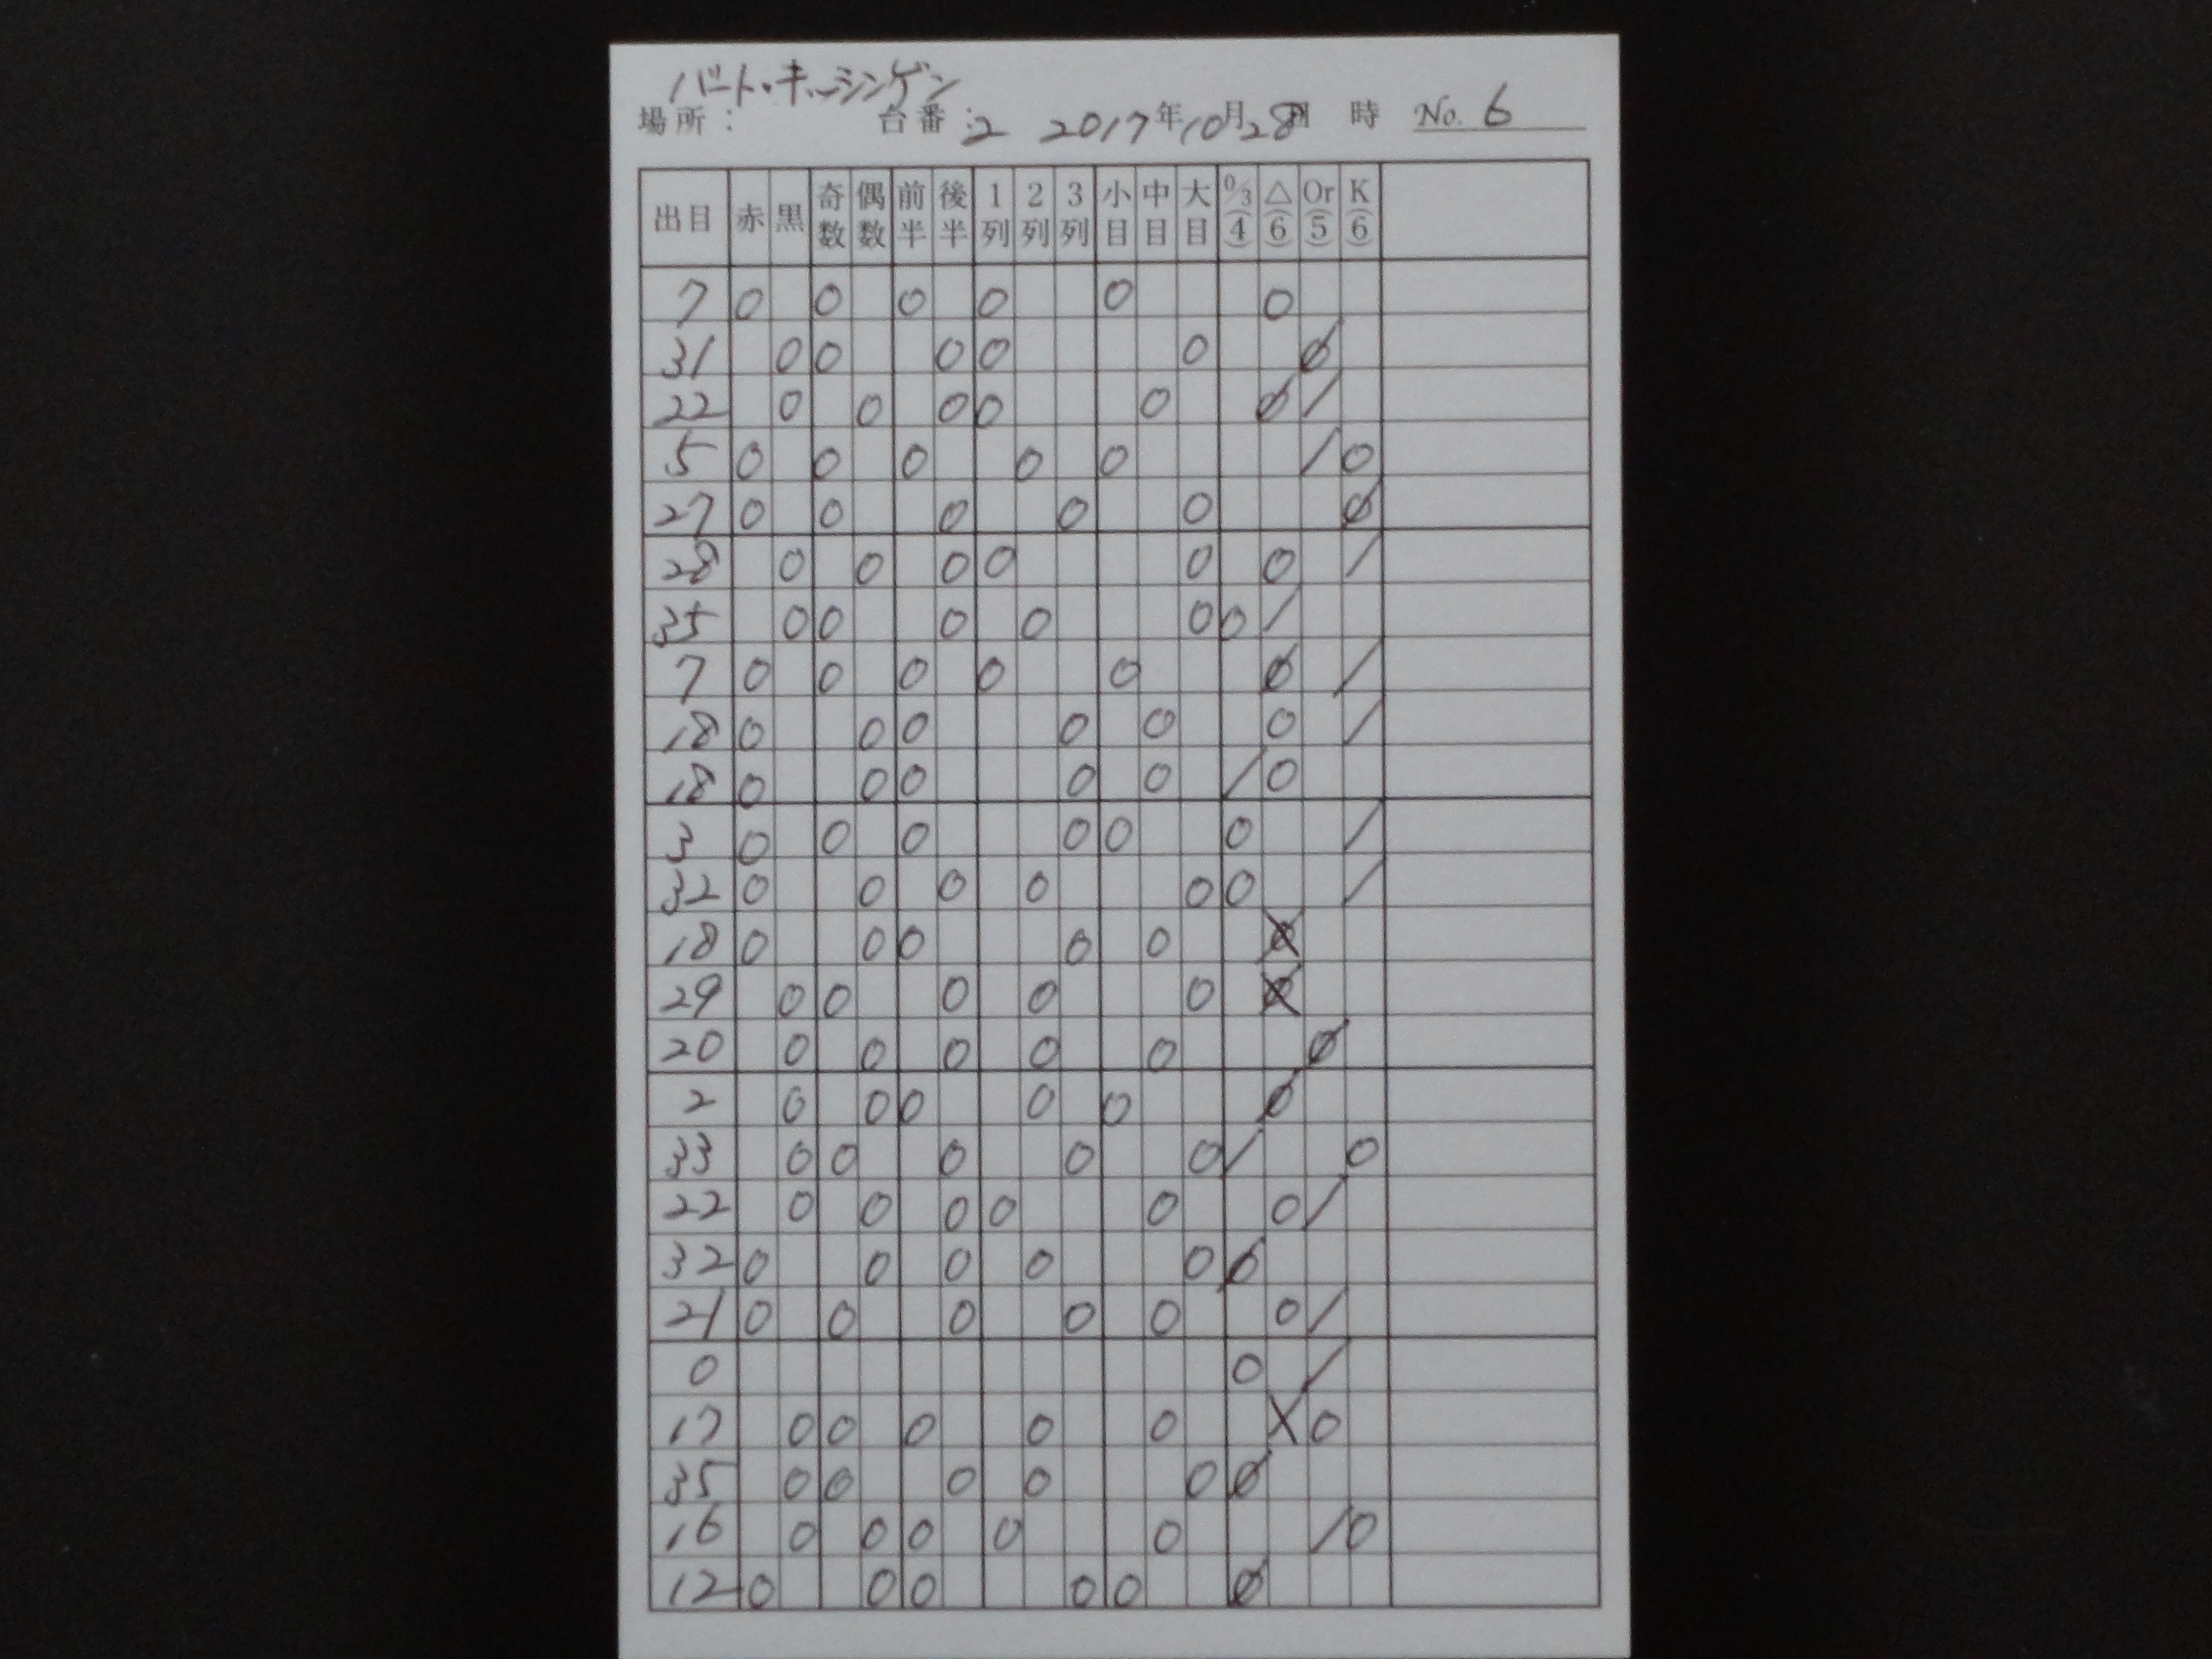 バート・キッシンゲン
場所: 台番:2 2017年10月28日 時 No. 6
出目 赤 黒 奇数 偶数 前半 後半 1列 2列 3列 小目 中目 大目 0/3(4) △(6) Or(5) K(6)
7 0 0 0 0 0 0
31 0 0 0 0 0 Ø
22 0 0 0 0 0 Ø /
5 0 0 0 0 0 / 0
27 0 0 0 0 0 Ø
28 0 0 0 0 0 0 /
35 0 0 0 0 0 0 /
7 0 0 0 0 0 Ø /
18 0 0 0 0 0 0 /
18 0 0 0 0 0 / 0
3 0 0 0 0 0 0 /
32 0 0 0 0 0 0 /
18 0 0 0 0 0
29 0 0 0 0 0
20 0 0 0 0 0 Ø
2 0 0 0 0 0 Ø
33 0 0 0 0 0 / 0
22 0 0 0 0 0 0 /
32 0 0 0 0 0 Ø
21 0 0 0 0 0 0 /
0 0 /
17 0 0 0 0 0 X 0
35 0 0 0 0 0 Ø
16 0 0 0 0 0 / 0
12 0 0 0 0 0 Ø